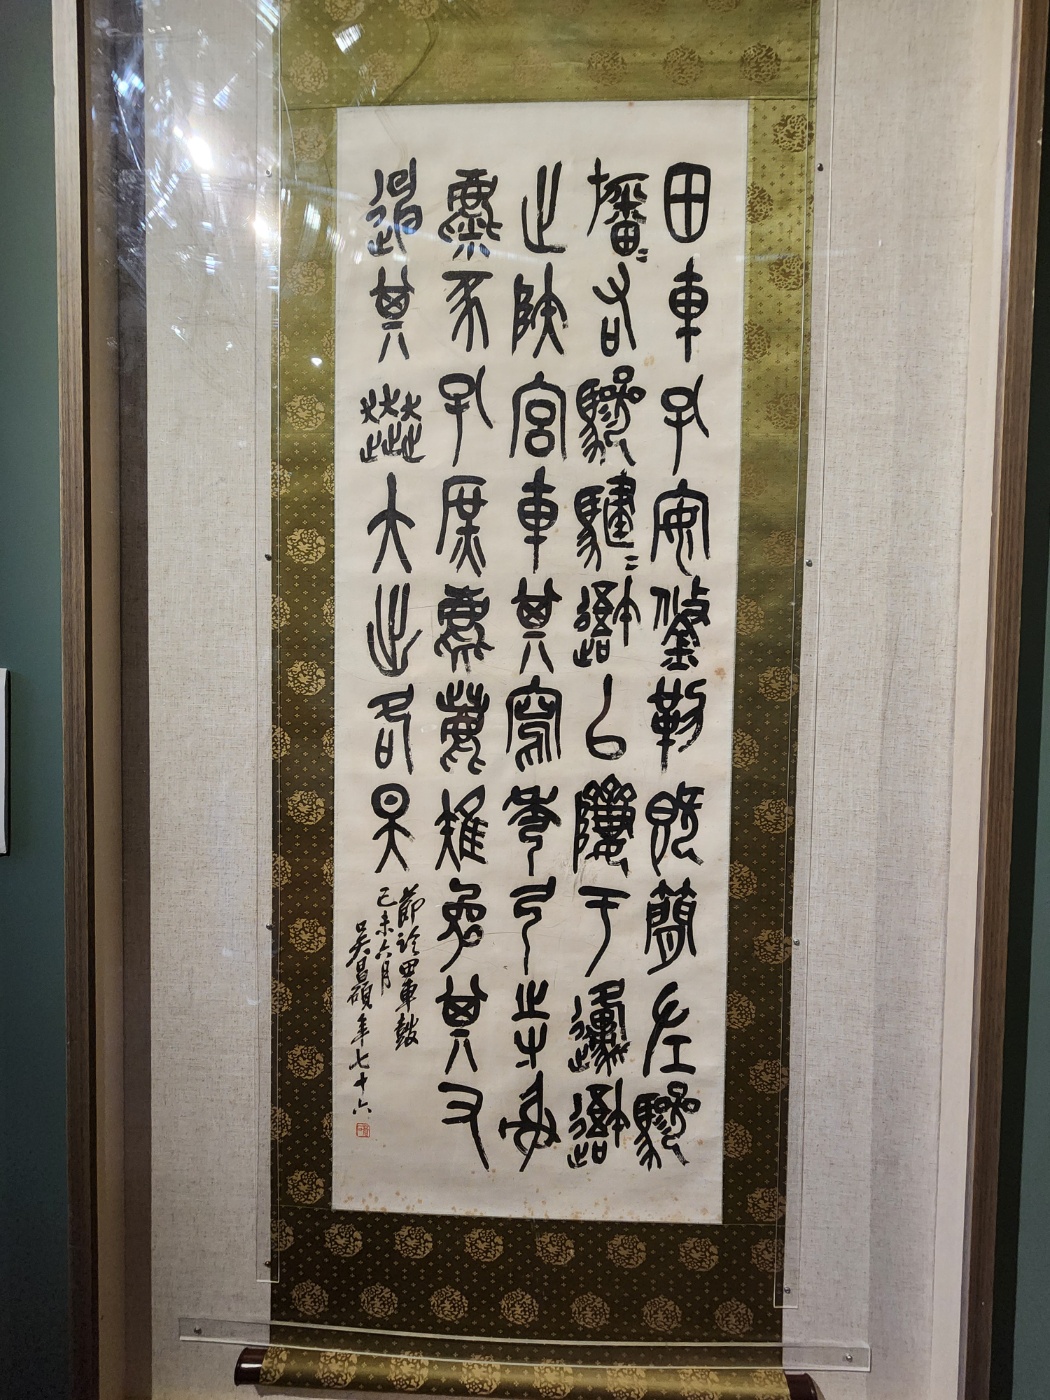 田車孔安鋚勒既簡左驂
旛=右驂騝=𨖴以隮于邍𨖴
止陝宮車其寫秀弓寺射
麋豕孔庶麀鹿雉兔其又
其大出各昊
節臨田車鼓
己未六月
吳昌碩年七十六